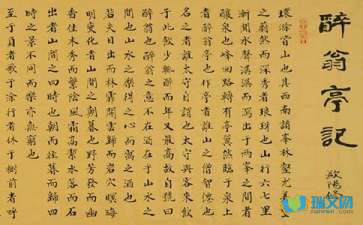 醉翁亭記
歐陽修
環滁皆山也其西南諸峰林壑尤美望
之蔚然而深秀者琅琊也山行六七里
漸聞水聲潺潺而瀉出于兩峰之間者
釀泉也峰回路轉有亭翼然臨于泉上
者醉翁亭也作亭者誰山之僧智僊也
名之者誰太守自謂也太守與客來飲
于此飲少輒醉而年又最高故自號曰
醉翁也醉翁之意不在酒在乎山水之
間也山水之樂得之心而寓之酒也
若夫日出而林霏開雲歸而岩穴暝晦
明變化者山間之朝暮也野芳發而幽
香佳木秀而繁陰風霜高潔水落而石
出者山間之四時也朝而往暮而歸四
時之景不同而樂亦無窮也
至于負者歌于塗行者休于樹前者呼
瑞文网